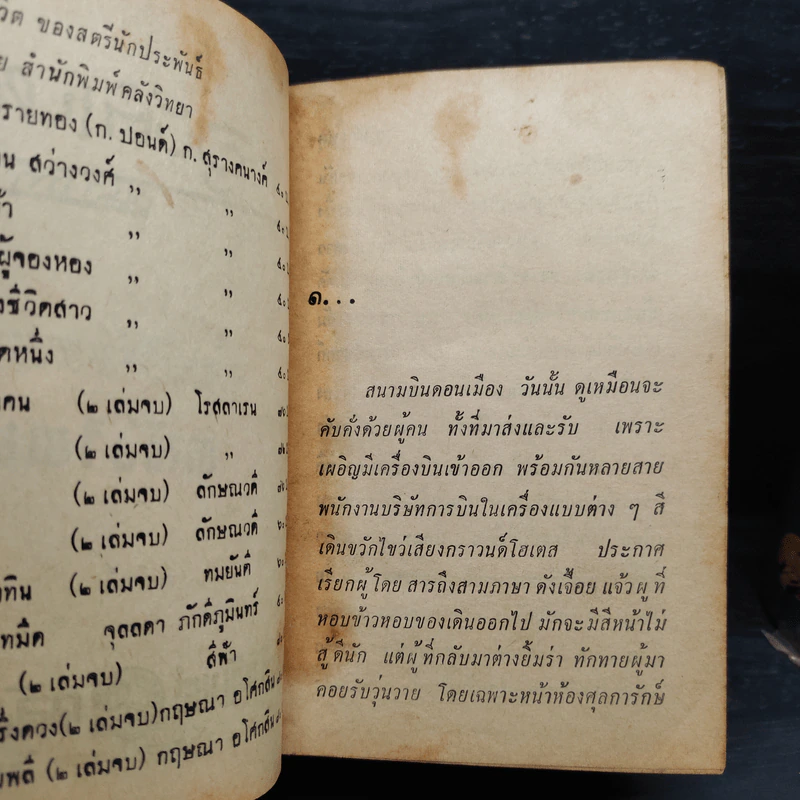 ของสตรีนักประพันธ์
สำนักพิมพ์คลังวิทยา
รายทอง (ก. ปอนด์) ก. สุรางคนางค์
สว่างวงศ์ ,, ,,
,, ,,
ผู้จองหอง ,, ,,
ชีวิตสาว ,, ,,
หนึ่ง ,, ,,
คน (๒ เล่มจบ) โรสลาเรน
(๒ เล่มจบ) ,,
(๒ เล่มจบ) ลักษณวดี
(๒ เล่มจบ) ลักษณวดี
(๒ เล่มจบ) ทมยันตี
จุลลดา ภักดีภูมินทร์
(๒ เล่มจบ) สีฟ้า
(๒ เล่มจบ) กฤษณา อโศกสิน
(๒ เล่มจบ) กฤษณา อโศกสิน
๑...
สนามบินดอนเมือง วันนั้น ดูเหมือนจะ
คับคั่งด้วยผู้คน ทั้งที่มาส่งและรับ เพราะ
เผอิญมีเครื่องบินเข้าออก พร้อมกันหลายสาย
พนักงานบริษัทการบินในเครื่องแบบต่าง ๆ สี
เดินขวักไขว่เสียงกราวนด์โฮเตส ประกาศ
เรียกผู้โดย สารถึงสามภาษา ดังเจื้อย แจ้ว ผู้ ที่
หอบข้าวหอบของเดินออกไป มักจะ มีสีหน้าไม่
สู้ ดีนัก แต่ผู้ ที่กลับมาต่างยิ้มร่า ทักทายผู้มา
คอยรับวุ่นวาย โดยเฉพาะหน้าห้องศุลการักษ์